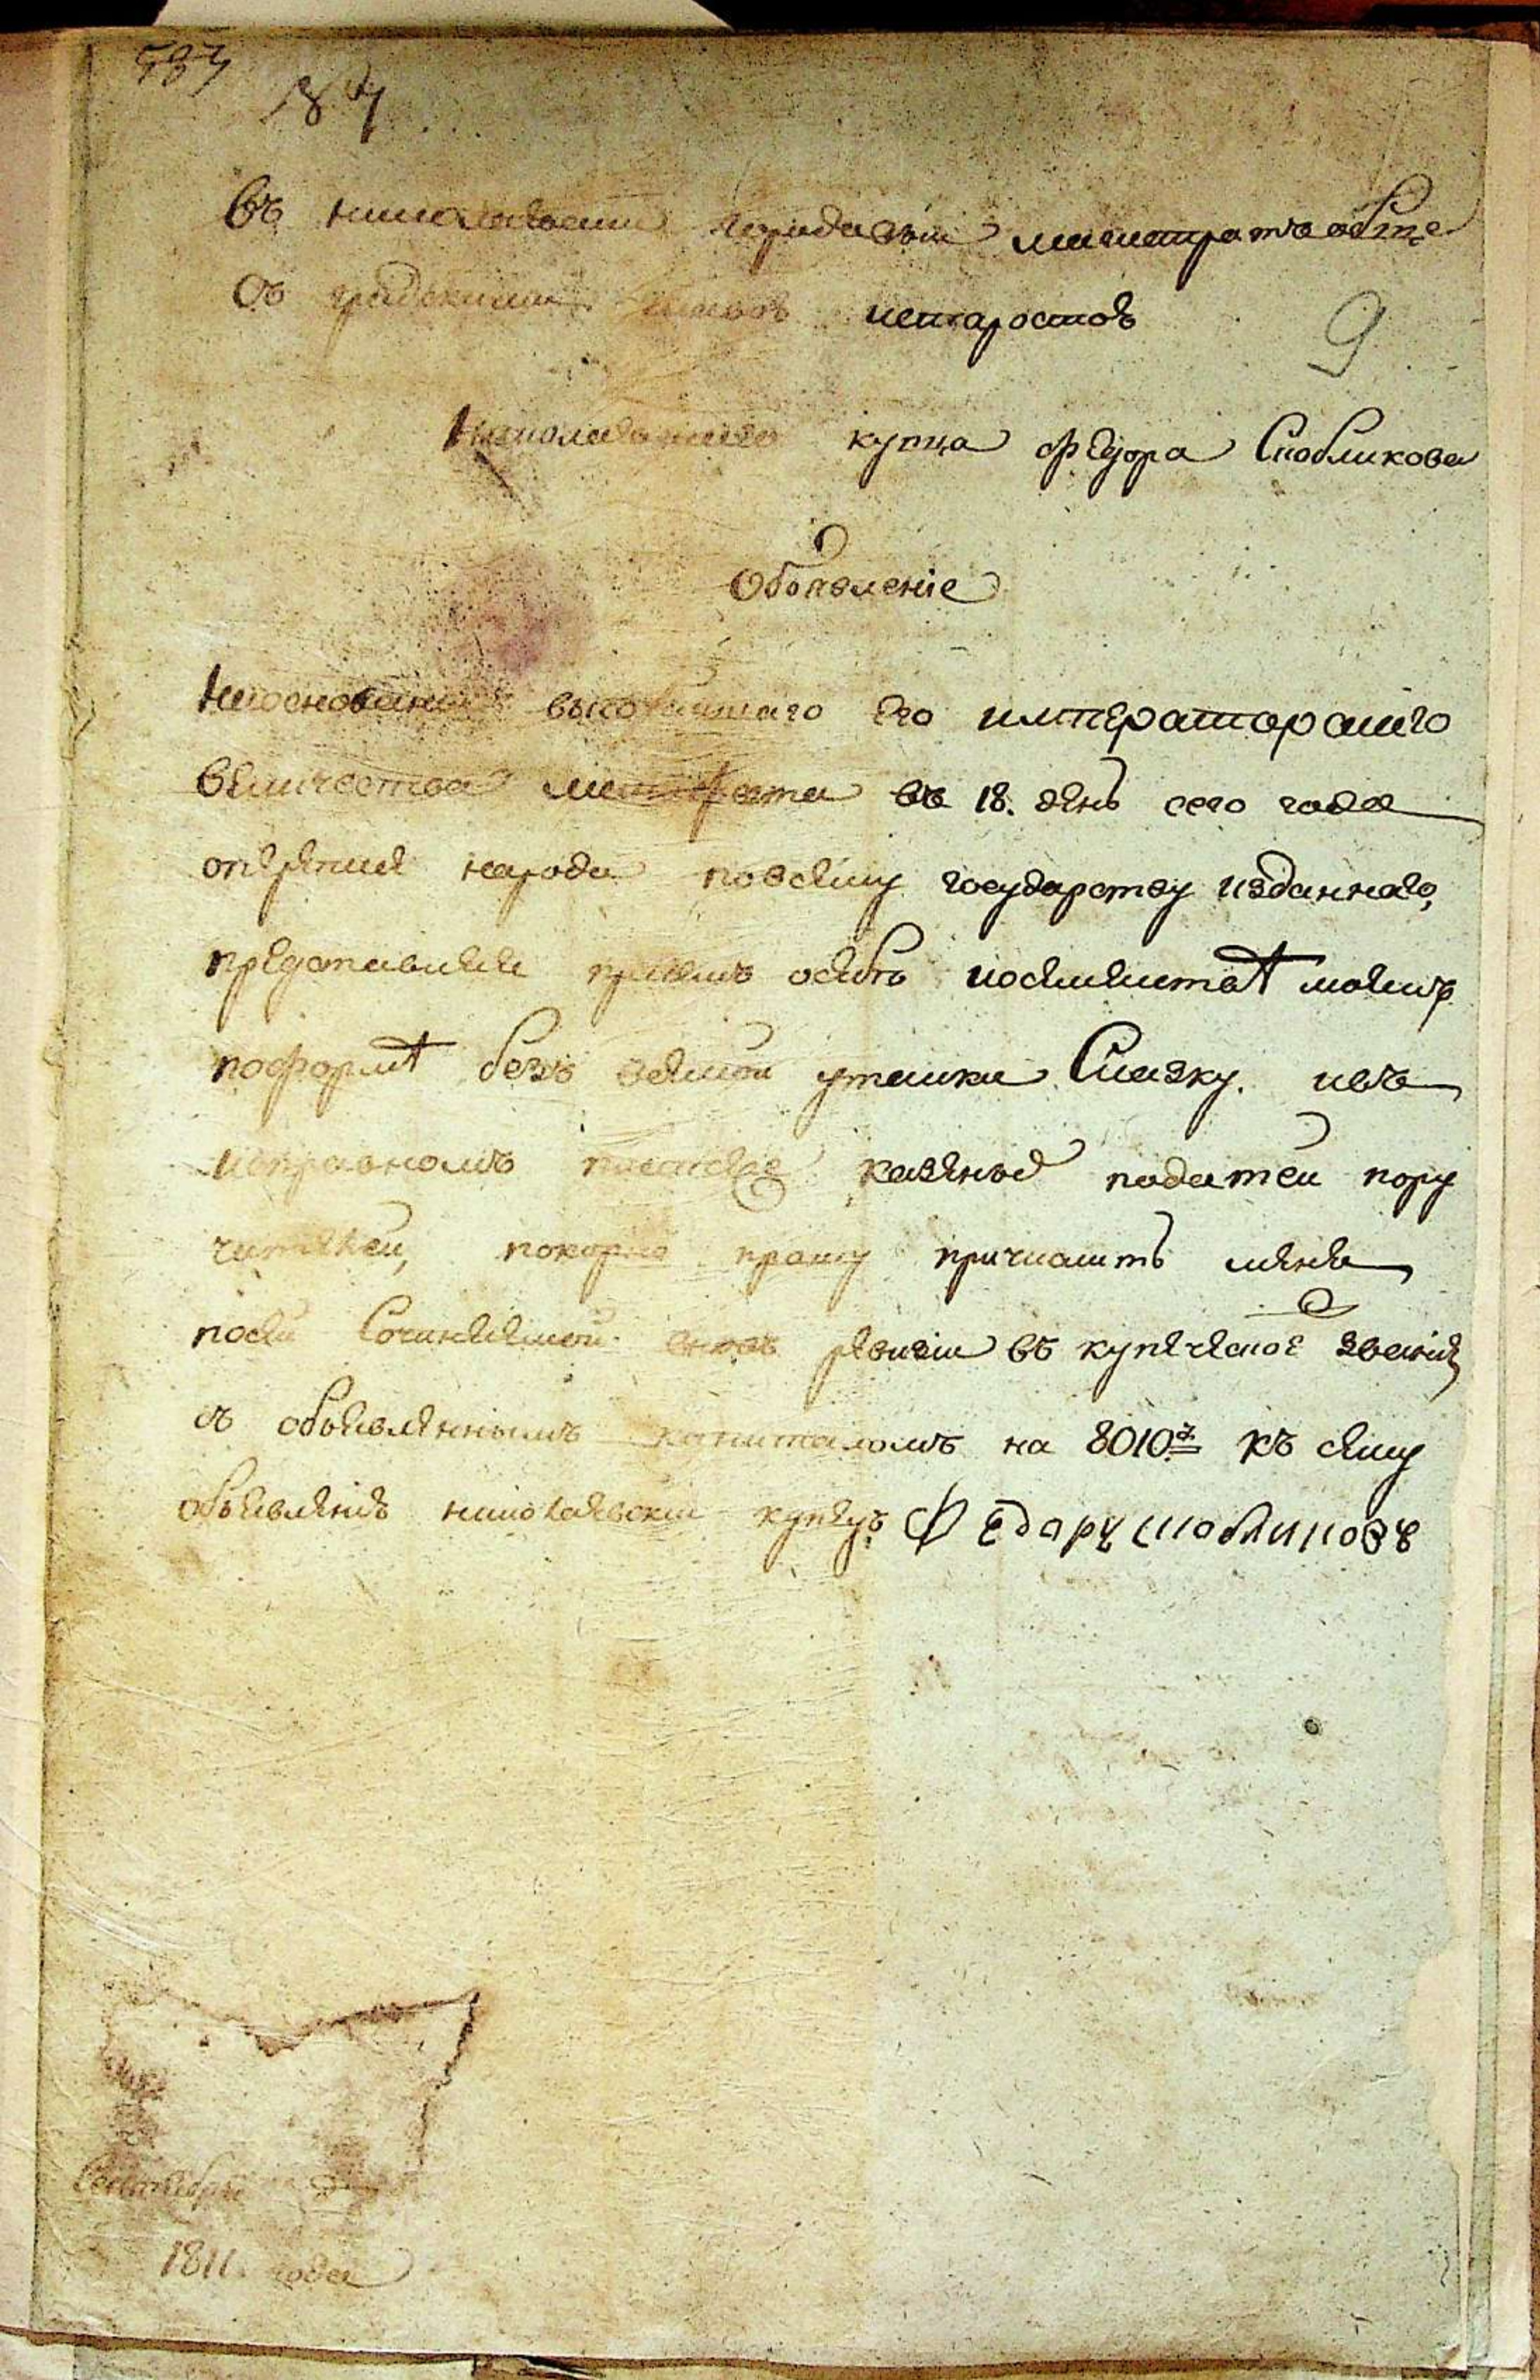 587
87
въ николаевскии городовыи магистратъ обще
съ градскими и старостов
9
николаевскаго купца Федора Скобликова
Объявленіе
на основании высочаишаго его императорскаго
величества манифеста въ 18. день сего года
о народа по всему государству изданнаго,
представляя при семъ о себѣ и о семеиствѣ моемъ
по формѣ безъ всякои утаики Сказку. и въ
исправномъ казеных податеи пору
читилеи, покорно прошу причислить меня
по сеи Сочиняемои вновь ревизии въ купеческое звание
съ объявленнымъ капиталомъ на 8010 къ сему
объявлению николаевскии купецъ Федоръ Скобликовъ
Сентября
1811. года